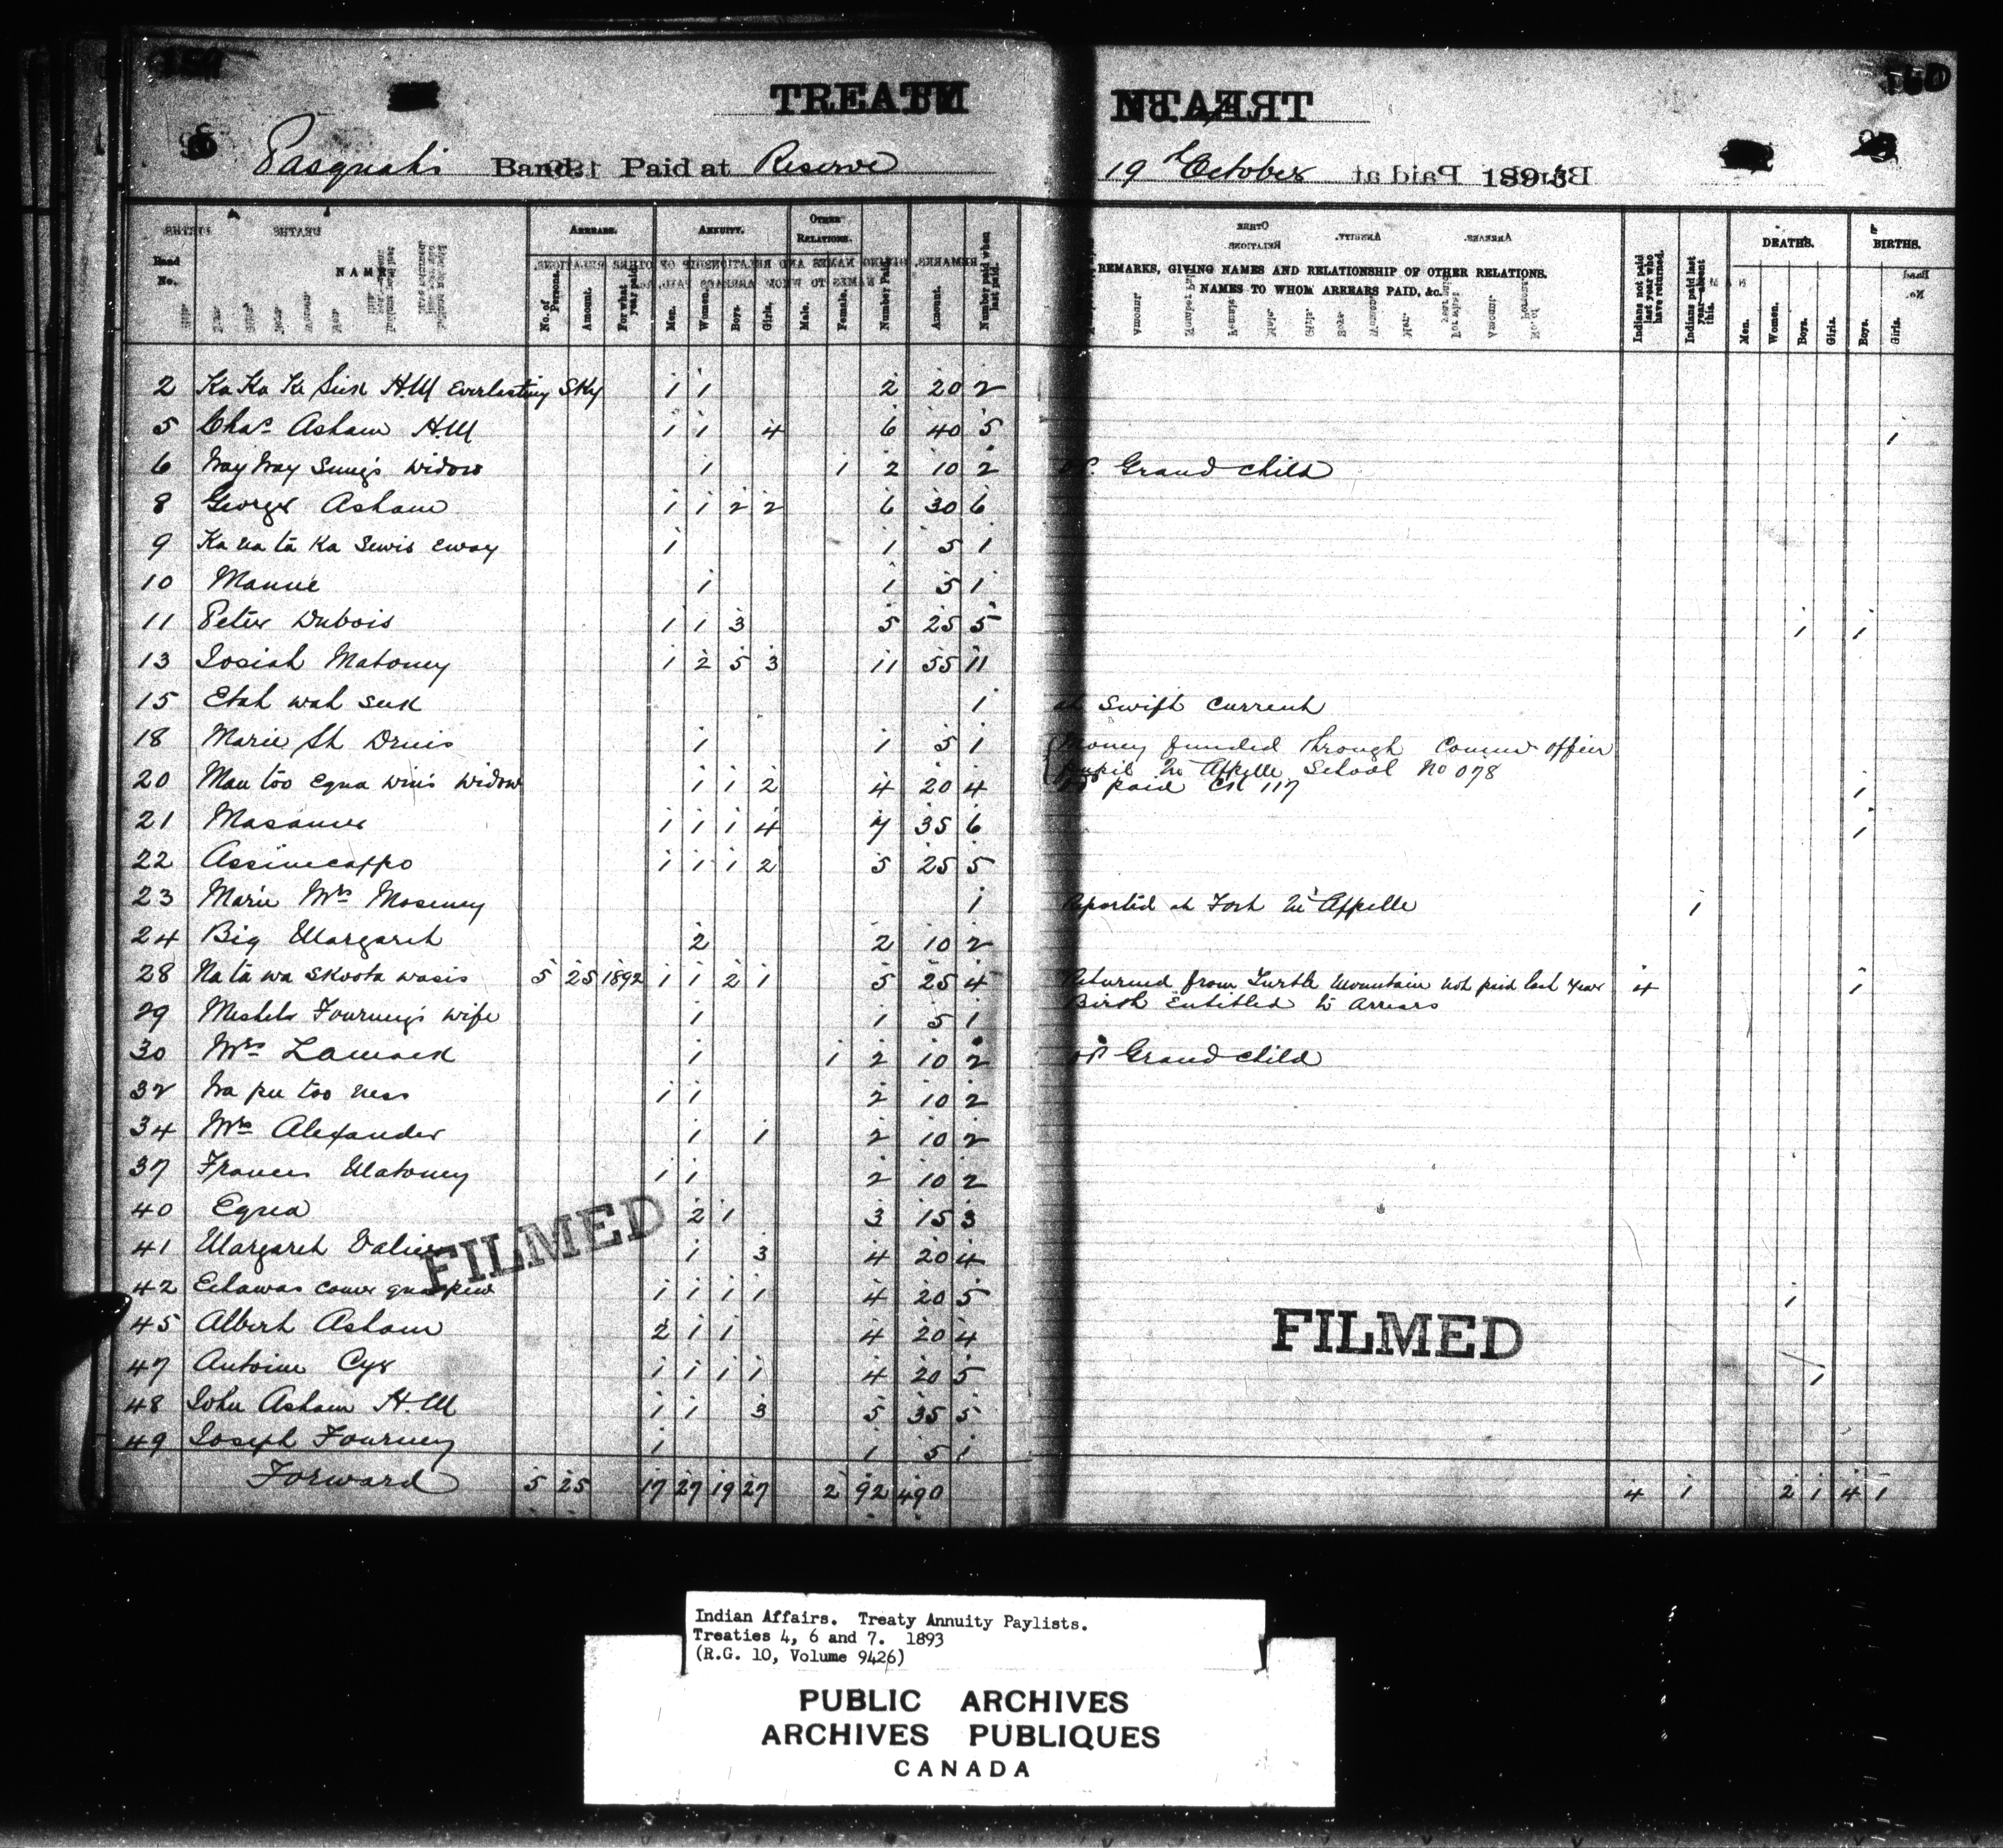 TREATY No. 4
Pasquah's Band. Paid at Reserve 19th October 1893
Band No.
NAME
ARREARS.
No. of Persons.
Amount.
For what year paid.
ANNUITY.
Men.
Women.
Boys.
Girls.
OTHER RELATIONS.
Male.
Female.
Number Paid.
Amount.
Number paid when last paid.
REMARKS, GIVING NAMES AND RELATIONSHIP OF OTHER RELATIONS.
NAMES TO WHOM ARREARS PAID, &c.
Indians not paid last year who have returned.
Indians paid last year absent this.
DEATHS.
Men.
Women.
Boys.
Girls.
BIRTHS.
Boys.
Girls.
2 Ka Ka Ke Sick H.M Everlasting Sky 1 1 2 20 2
5 Chas. Asham H.M 1 1 4 6 40 5 1
6 Way Way Sung's Widow 1 1 2 10 2 Grand child
8 George Asham 1 1 2 2 6 30 6
9 Ka na ta Ka Sewis eway 1 1 5 1
10 Mannie 1 1 5 1
11 Peter Dubois 1 1 3 5 25 5 1 1
13 Josiah Matoney 1 2 5 3 11 55 11
15 Etah wah suk 1 at Swift Current
18 Marie St Denis 1 1 5 1 Money funded through Commr office
pupil Qu'Appelle School No 078
20 Man too Equa win's Widow 1 1 2 4 20 4 paid CK 117 1
21 Masawee 1 1 1 4 7 35 6 1
22 Assinecappo 1 1 1 2 5 25 5
23 Marie Mrs Moseney 1 Reported at Fort Qu'Appelle 1
24 Big Margaret 2 2 10 2
28 Na ta wa skoota wasis 5 25 1892 1 1 2 1 5 25 4 Returned from Turtle Mountain not paid last year 4 1
Birth Entitled to Arrears
29 Mechels Fourney's wife 1 1 5 1
30 Mrs Lamack 1 1 2 10 2 Grand child
32 Wa pee too ness 1 1 2 10 2
34 Mrs Alexander 1 1 2 10 2
37 Frances Matoney 1 1 2 10 2
40 Equa 2 1 3 15 3
41 Margaret 1 3 4 20 4
42 1 1 1 1 4 20 5 1
45 Albert Asham 2 1 1 4 20 4
47 Antoine Cyr 1 1 1 1 4 20 5 1
48 John Asham H.M 1 1 3 5 35 5
49 Joseph Fourney 1 1 5 1
Forward 5 25 17 27 19 27 2 92 490 4 1 2 1 4 1
FILMED
FILMED
Indian Affairs. Treaty Annuity Paylists.
Treaties 4, 6 and 7. 1893
(R.G. 10, Volume 9426)
PUBLIC ARCHIVES
ARCHIVES PUBLIQUES
CANADA